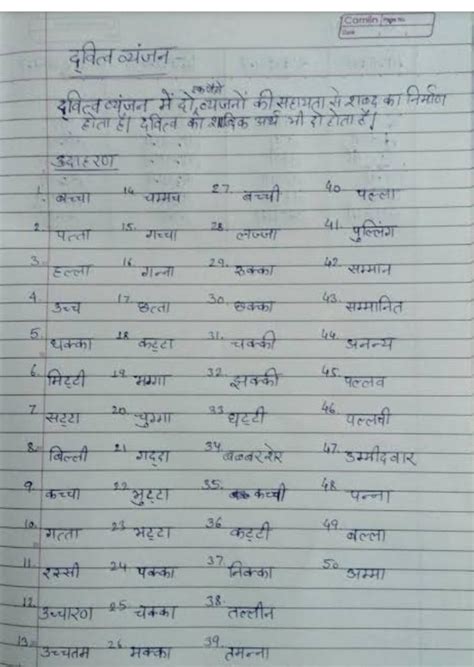 Camlin Page No.
Date
द्वित्व व्यंजन
द्वित्व व्यंजन में दो एक जैसे व्यंजनों की सहायता से शब्द का निर्माण
होता है। द्वित्व का शाब्दिक अर्थ भी दो होता है।
उदाहरण
1. बच्चा 14 चम्मच 27. बच्ची 40. पल्ला
2. पत्ता 15. गच्चा 28. लज्जा 41. पुल्लिंग
3. हल्ला 16. गन्ना 29. रुक्का 42. सम्मान
4 उच्च 17. छत्ता 30. छक्का 43. सम्मानित
5. धक्का 18 कट्टा 31. चक्की 44. अनन्य
6. मिट्टी 19 मग्गा 32. झक्की 45. पल्लव
7 सट्टा 20 चुम्मा 33 घट्टी 46. पल्लवी
8. बिल्ली 21 गद्दा 34 बब्बरशेर 47. उम्मीदवार
9 कच्चा 22 भुट्टा 35. कच्ची 48 पन्ना
10. गत्ता 23 भट्टा 36 कट्टी 49. बल्ला
11 रस्सी 24 पक्का 37. निक्का 50 अम्मा
12. उच्चारण 25 चक्का 38. तल्लीन
13. उच्चतम 26 मक्का 39. तमन्ना